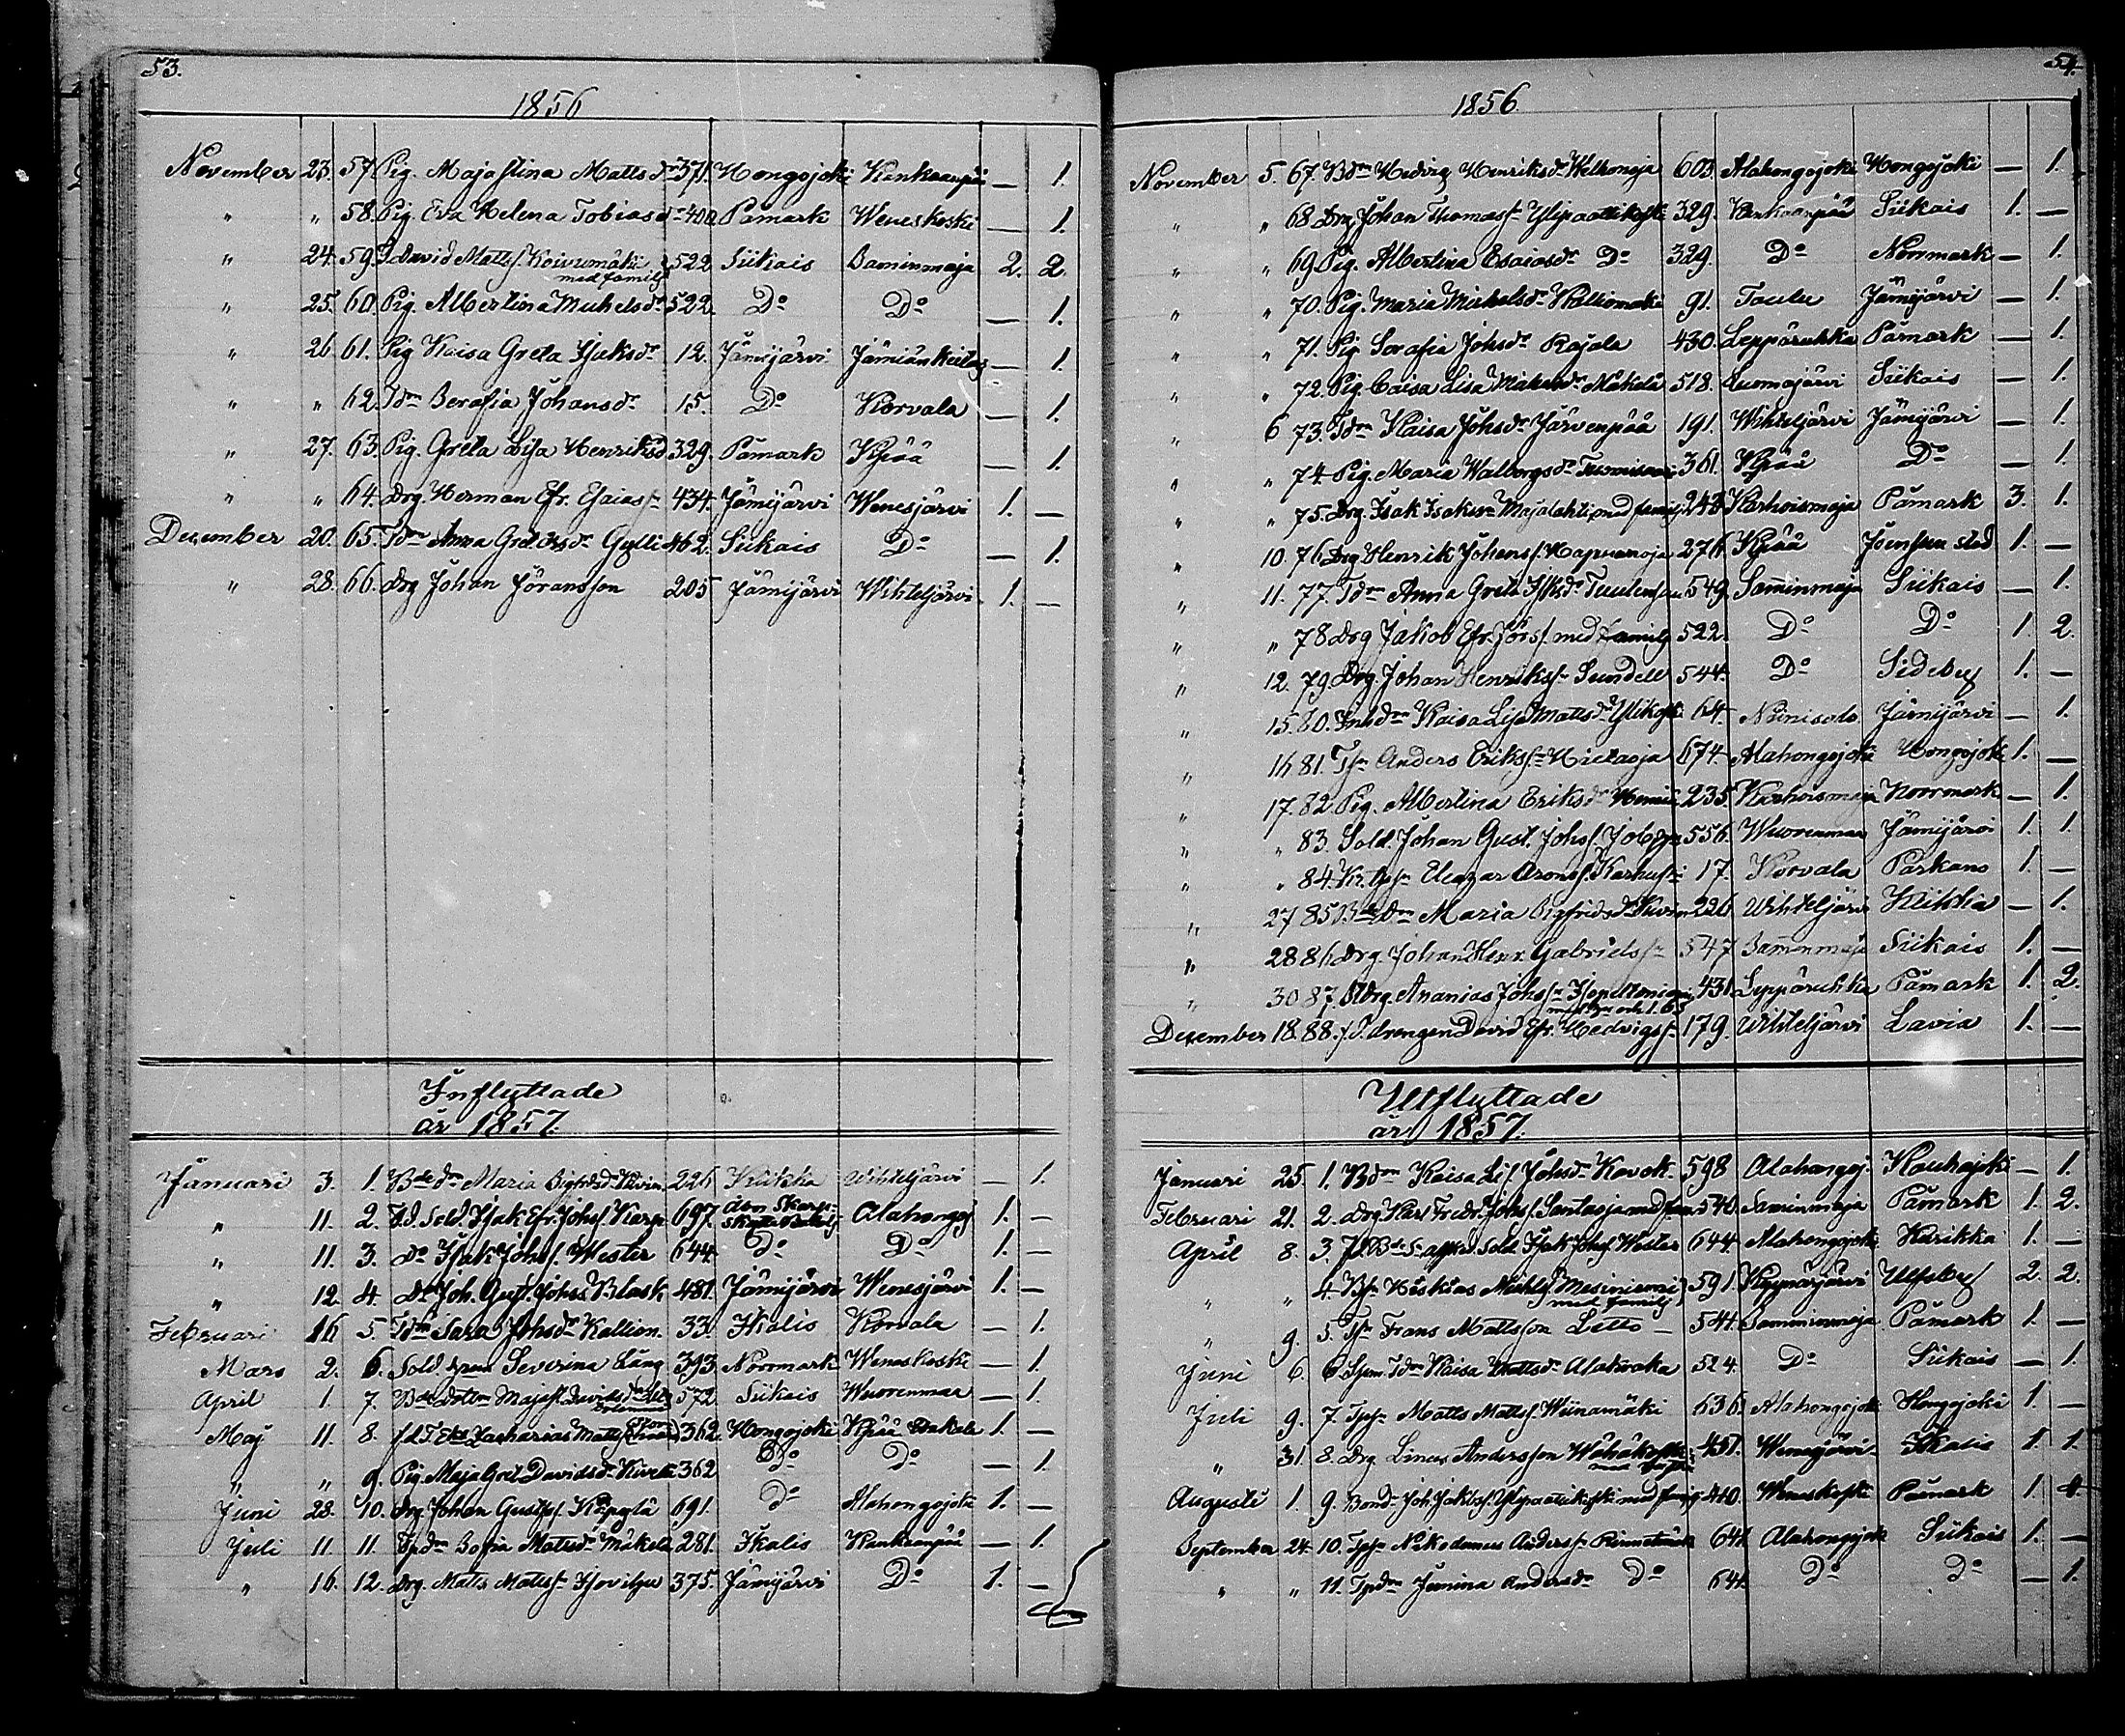 53.
1856
November 23. 57. Pig. Maja Stina Matts dr 371. Hongojoki Kankaanpää — 1.
" " 58. Pig. Eva Helena Tobiasd 400 Påmark Weneskoski — 1.
" 24. 59. David Matts. Koivumäki 522 Siikais Saminmaja 2. 2.
med familj
" 25. 60. Pig. Albertina Michelsdr 522. Do Do — 1.
" 26 61. Pig Kaisa Greta Isaksdr 12. Jämijärvi Jämiänkeidas — 1.
" " 62. Tdrn Serafia Johansdr 15. Do Korvala — 1.
" 27. 63. Pig. Greta Lisa Henriksd 329. Påmark Kyröä — 1.
" " 64. Drg. Herman Efr. Esaiass. 434. Jämijärvi Wenesjärvi 1. —
December 20. 65. Tdrn Anna Gret. dr Gylli 462. Siikais Do — 1.
" 28. 66. Drg Johan Göransson 205 Jämijärvi Wihteljärvi 1. —
Inflyttade
år 1857.
Januari 3. 1. Bdedr Maria Sigfrds.dr 226 Kiikka Wihteljärvi — 1.
" 11. 2. f.d. Sold. Isak Efr. Johs. Karp 697. Åbo Skarp-
Skytte Batalj Alahongoj 1. —
" 11. 3. Do Isak Johs. Wester 644. Do Do 1. —
" 12. 4. Do Joh. Gust. Johss. Blask 481. Jämijärvi Wenesjärvi 1. —
Februari 16 5. Tdrn Sara Johsdr Kallion. 33. Ikalis Korvala — 1.
Mars 2. 6. Sold. Severina Lång 393. Norrmark Weneskoski — 1.
April 1. 7. Bde Majast. Davidsdr 572 Siikais Wuorenmaa — 1.
Maj 11. 8. f.d. Zacharias Matts. 362. Hongojoki Kyröä 1. —
" " 9. Pig. Maja Gret. Davidsdr 362 Do Do — 1.
Juni 28. 10. Drg. Johan Gustfs. 691. Do Alahongojoki 1. —
Juli 11 11. Tpdrn Sofia Matsdr Mäkelä 281. Ikalis Kankaanpää — 1.
" 16. 12. Drg. Matts Mattss. 375. Jämijärvi Do 1. —
54.
1856
November 5. 67. Bdrn Hedvig Henriksdr 603. Alahongojoki Hongojoki — 1.
" " 68 Drg Johan Thomass. Ylipaattikoski 329. Kankaanpää Siikais 1. —
" " 69 Pig. Albertina Esaiasdr Do 329. Do Norrmark — 1.
" " 70. Pig. Maria Michelsdr Kalliomäki 91. Taulu Jämijärvi — 1.
" " 71. Pig Serafia Johsdr Rajala 430. Leppäruhka Påmark — 1.
" " 72. Pig. Caisa Lisa Mäkelä 518. Luomajärvi Siikais — 1.
" 6 73. Tdrn Kaisa Johsdr Järvenpää 191. Wihteljärvi Jämijärvi — 1.
" " 74. Pig. Maria Walborgsdr 361. Kyröä Do — 1.
" " 75. Drg. Isak Isakss. Majalahti med familj 248 Karhoismaja Påmark 3. 1.
" 10. 76. Drg Henrik Johanss. Hapuanoja 276 Kyröä Joensuu stad 1. —
" 11. 77. Tdrn Anna Greta 549. Saminmaja Siikais — 1.
" " 78 Drg Jakob Efr. Görss. med familj 522. Do Do 1. 2.
" 12. 79. Drg. Johan Henrikss. Sundell 544. Do Sideby 1. —
" 15. 80. Inhdrn Kaisa Lisa Mattsdr Ylikoski 64. Niinisalo Jämijärvi — 1.
" 16 81. Anders Erikss. Hietaoja 674. Alahongojoki Hongojoki 1. —
" 17. 82. Pig. Albertina Eriksdr 235. Karhoismaja Norrmark — 1.
" " 83. Sold. Johan Gust. Johs. 556. Wuorenmaa Jämijärvi 1. 1.
" " 84. Eleazar Arons. 17. Korvala Parkano 1. —
" 27 85. Bdedrn Maria Sigfridsdr 226 Wihteljärvi Kiikka — 1.
" 28 86 Drg. Johan Henr. Gabrielss. 547 Saminmaja Siikais 1. —
" 30 87. Drg. Ananias Johss. 431. Leppäruhka Påmark 1. 2.
December 18. 88. f.d. drengen David Efr. Hedvigss. 179. Wihteljärvi Lavia 1. —
Utflyttade
år 1857.
Januari 25. 1. Bdrn Kaisa Lis. Johsdr 598 Alahongoj. Kauhajoki — 1.
Februari 21. 2. Drg. Karl Fredr. Johs. Santaoja med fam 540. Saminmaja Påmark 1. 2.
April 8. 3. Sold. Isak Johs. Wester 644. Alahongojoki Kurikka 1. —
" " 4. Bs. Hiskias Michls. 591. Ulfsby 2. 2.
med familj
" 9. 5. Frans Mattsson Letto — 544. Saminmaja Påmark 1. —
Juni 6. 6. Tdrn Kaisa Mattsdr 524. Do Siikais — 1.
Juli 9. 7. Matts Mattss. Wiinamäki 636. Alahongojoki Hongojoki 1. —
" 31. 8. Drg Linus Andersson 451. Wenesjärvi Ikalis 1. 1.
Augusti 1. 9. Bond. Joh. Jakobs. Ylipaattikoski med familj 440. Weneskoski Påmark 1 4
September 24. 10. Nikodemus Anderss. 641. Alahongojok Siikais 1. —
" " 11. Tpdrn Jemina Andersdr Do 641. Do Do — 1.